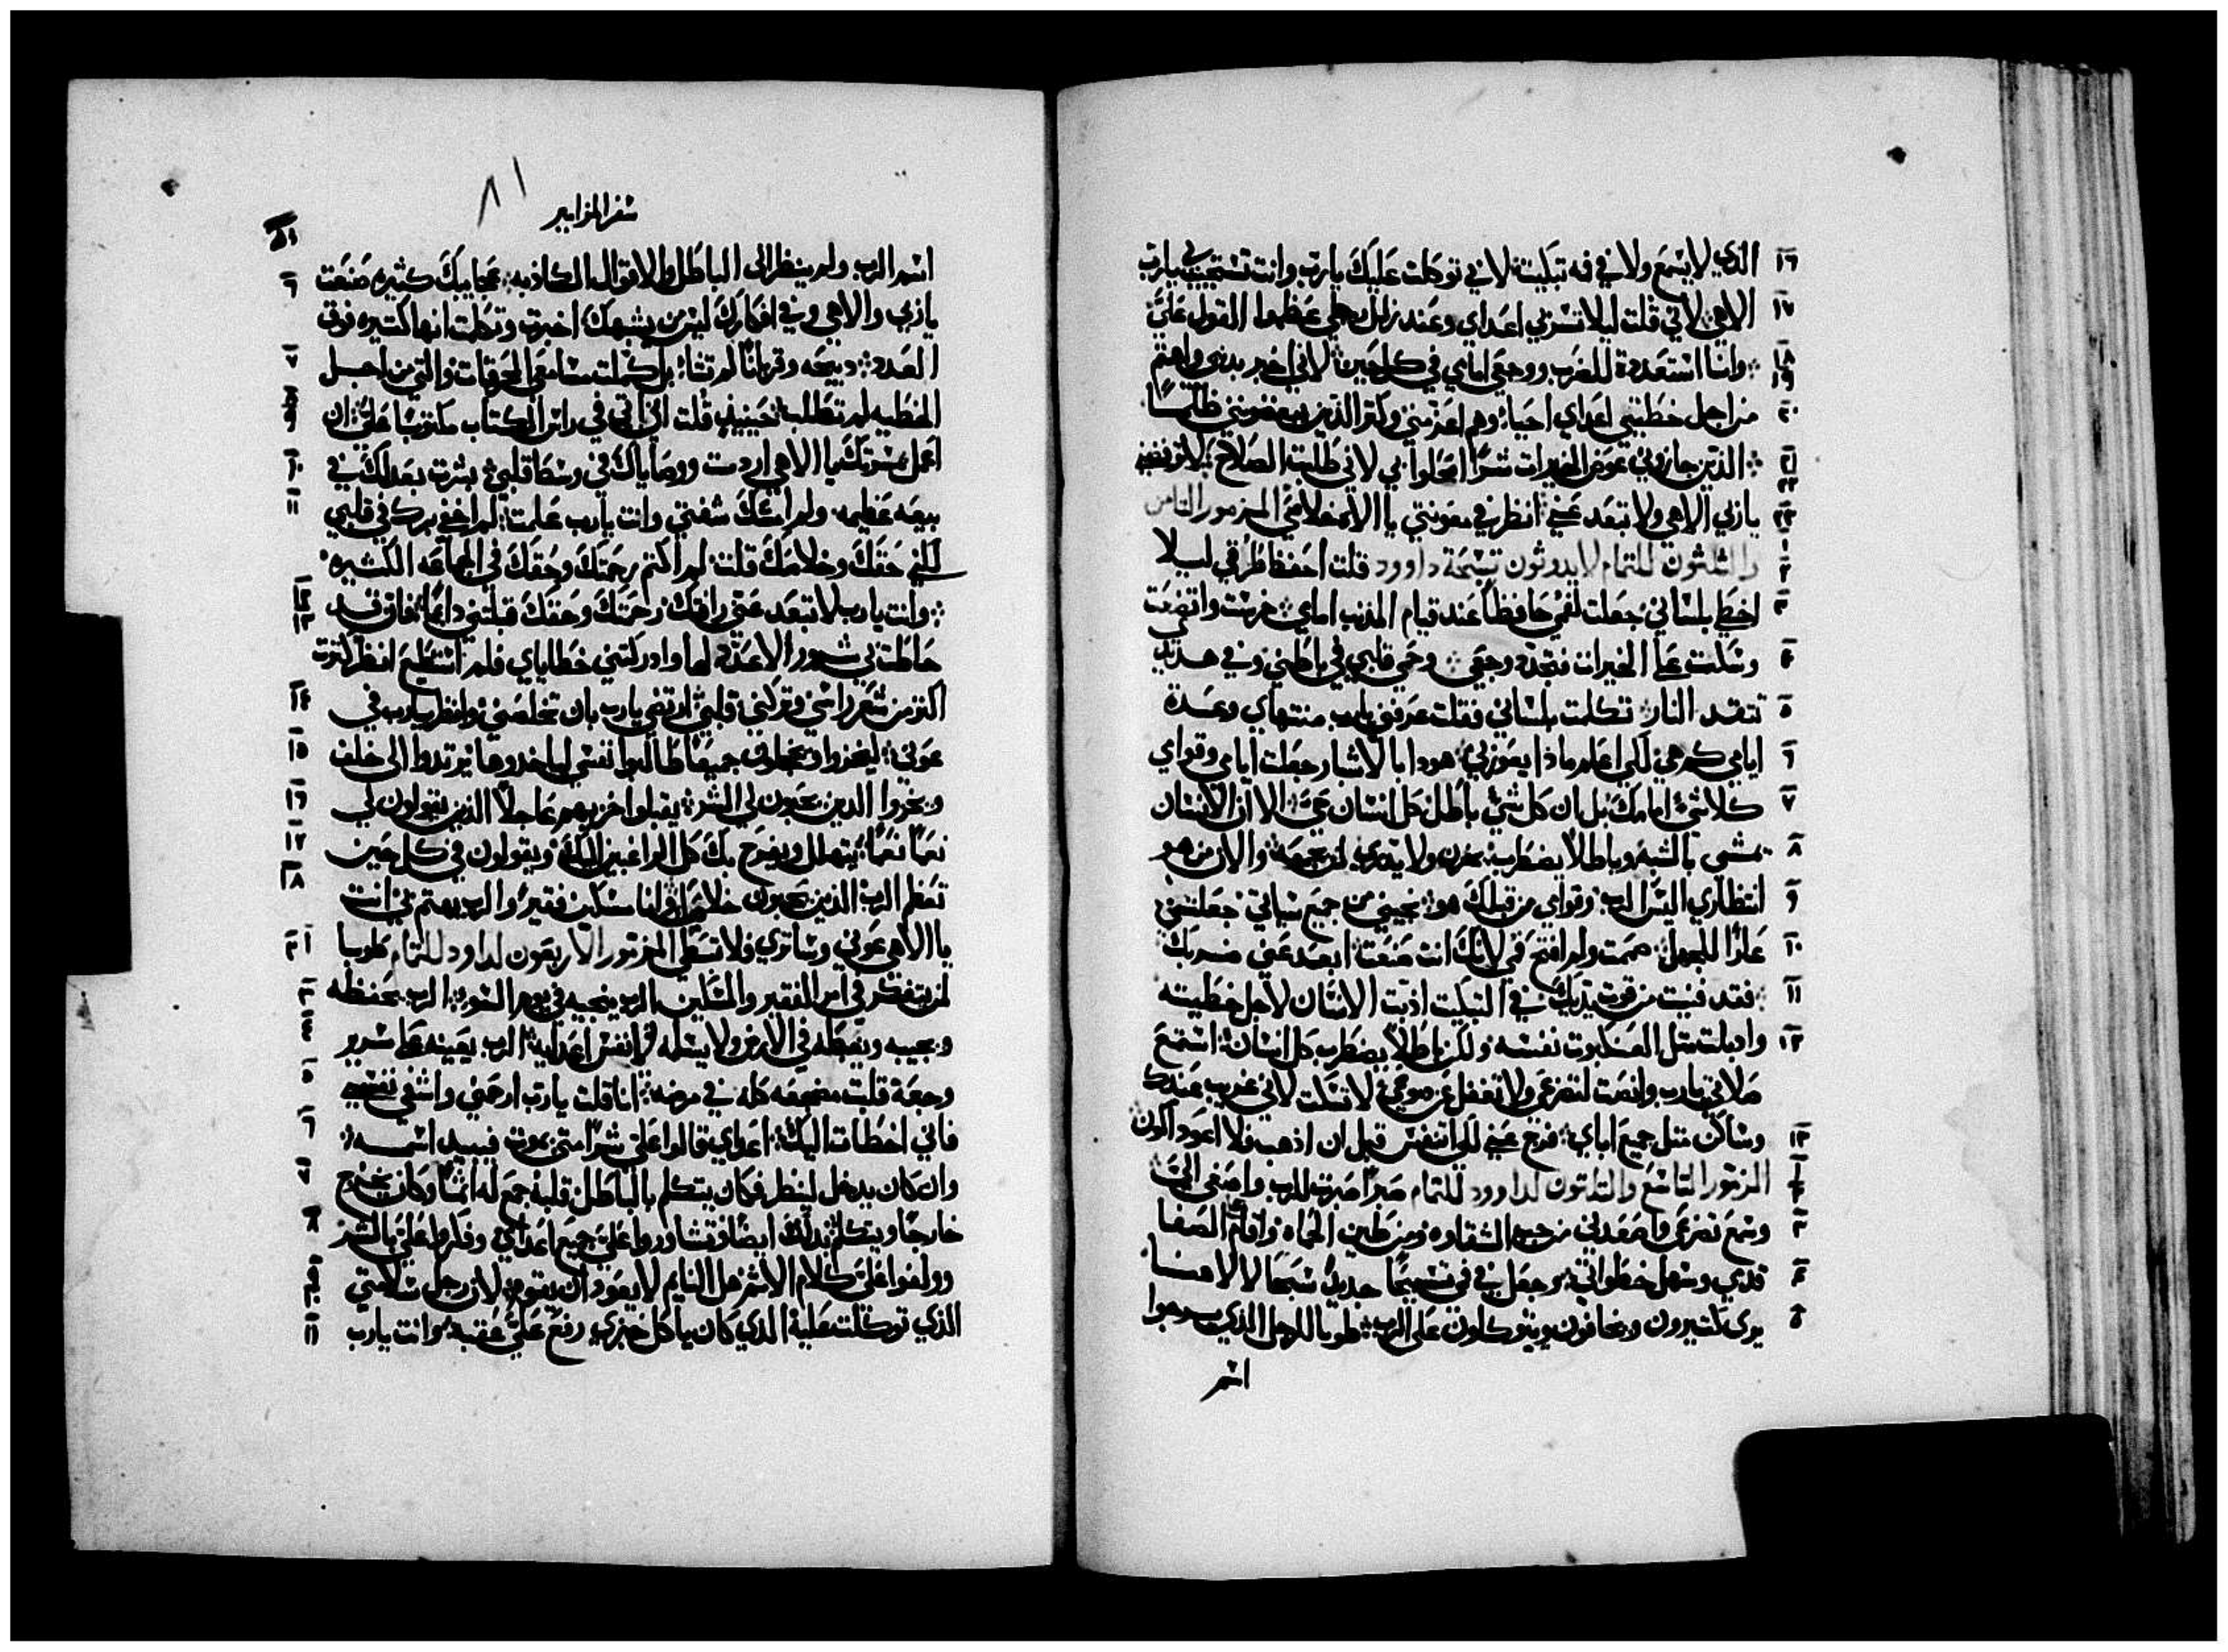 الذي لا يسمع ولا في فه تبكيت لاني توكلت عليك يارب وانت تستجيب لي يارب
الاهي لاني قلت ليلا تسر بي اعداي وعند زلل رجلي عظموا القول علي
وانا استعديت للضرب ووجعي امامي في كل حين لاني اخبر بذنبي واهتم
من اجل خطيتي اعداي احياء وهم اعز مني وكثر الذين يبغضونني ظلمًا
الذين جازوني عوض الخيرات شرًا محلوا بي لاني طلبت الصلاح لا ترفضني
ياربي الاهي ولا تبعد عني انظر في معونتي يا الاه خلاصي المزمور الثامن
والثلثون للتمام لايدوثون تسبحة داوود قلت احفظ طرقي ليلا
اخطي بلساني جعلت لفمي حافظًا عند قيام المذنب امامي خرست واتضعت
وسكت عن الخيرات فتجدد وجعي وحمي قلبي في باطني وفي هذيذي
تتقد النار تكلت بلساني فقلت عرفني يارب منتهاي وعدة
ايامي كم هي لكي اعلم ماذا يعوزني هودا بالاشبار جعلت ايامي وقوامي
كلا شي امامك بل ان كل شي باطل كل انسان حي الا ان الانسان
يمشي بالشبه وباطلًا يضطرب يخزن ولا يدري لمن يجمعه والان من هو
انتظاري اليس الرب وقوامي من قبلك هو نجيني من جميع سياتي جعلتني
عارًا للجهل صمت ولم افتح فمي لانك انت صنعت ابعد عني ضربك
فقد فنيت من قوت يديك في التبكيت ادبت الانسان لاجل خطيته
واذبلت مثل العنكبوت نفسه ولكن باطلًا يضطرب كل انسان استمع
صلاتي يارب وانصت لتضرعي ولا تغفل عن دموعي لا تسكت لاني غريب عندك
وساكن مثل جميع اباي فرج عني لكي اتنفس قبل ان اذهب فلا اعود اكون
المزمور التاسع والثلثون لداوود للتمام صبرًا صبرت للرب واصغى الي
وسمع تضرعي واصعدني من جب الشقاوه ومن طين الحماه واقام على الصفا
قدمي وسهل خطواتي وجعل في فمي تسبيحًا جديدًا سبحًا لالاهنا
يرى كثيرون ويخافون ويتوكلون على الرب طوبا للرجل الذي رجوا
اسم
سفر المزامير
٨١
اسم الرب ولم ينظر الى الباطل والاقوال الكاذبه عجايبك كثيره صنعت
ياربي والاهي وفي افكارك ليس من يشبهك اخبرت وتكلت انها كثيره فوق
العدد ذبيحه وقربانًا لم تشا بل كملت مسامعي المحرقات والتي من اجل
الخطيه لم تطلب حينيذ قلت اني اتي في راس الكتاب مكتوبًا علي ان
اعمل مسرتك يا الاهي اردت ووصاياك في وسط قلبي بشرت بعدلك في
بيعه عظيمه ولم امسك شفتي وانت يارب علمت لم اخفي برك في قلبي
لكني حقك وخلاصك قلت لم اكتم رحمتك وحقك في الجماعه الكثيره
وانت يارب لا تبعد عني رافتك رحمتك وحقك قبلتني دايمًا فانه قد
حاطت بي شرور الاعدد لها وادركتني خطاياي فلم استطيع انظر كثرت
اكثر من شعر راسي وتركني قلبي ارتضي يارب بان تخلصني وانظر يارب في
عوني ليخزوا ويخجلوا جميعًا طالبوا نفسي لياخدوها يرتدوا الى خلف
ويخزوا الدين يحبون لي الشر يقبلوا خزيهم عاجلًا الذين يقولون لي
نعمًا نعمًا يتهلل ويفرح بك كل الراغبين اليك ويقولون في كل حين
تعظم الرب الذين يحبون خلاصك وانا مسكين فقير والرب يهتم بي انت
يا الاهي عوني وساتري فلا تبطي المزمور الاربعون لداود للتمام طوبا
لمن يتفكر في امر الفقير والمسكين الرب ينجيه في يوم السو الرب يحفظه
ويحييه ويغبطه في الارض ولا يسلمه في انفس اعدايه الرب يعينه على سرير
وجعه قلبت مضجعه كله في مرضه انا قلت يارب ارحمني واشفي نفسي
فاني اخطات اليك اعداي قالوا علي شرًا متى يموت فيبيد اسمه
وان كان يدخل لينظر فكان يتكلم بالباطل قلبه جمع له اثمًا وكان يخرج
خارجًا ويتكلم بذلك ايضًا وتشاوروا علي جميع اعداي وفكروا علي بالشر
وولفوا علي كلام الاثم هل النايم لا يعود ان يقوم لان رجل سلامتي
الذي توكلت عليه الذي كان ياكل خبزي رفع علي عقبه وانت يارب